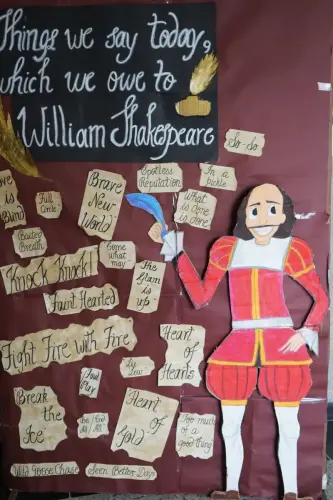 Things we say today,
which we owe to
William Shakespeare
So-So
Love
is
Blind
Full
Circle
Brave
New
World
Spotless
Reputation
In a
pickle
What is
done is
done
Baited
Breath
Knock Knock!
Come
what
may
The
Game
is
up
Faint Hearted
Fight Fire with Fire
Heart
of
Hearts
Foul
Play
Lie
Low
Break
the
Ice
Heart
of
Gold
Too much
of a
good thing
Wild Goose Chase
Seen Better Days